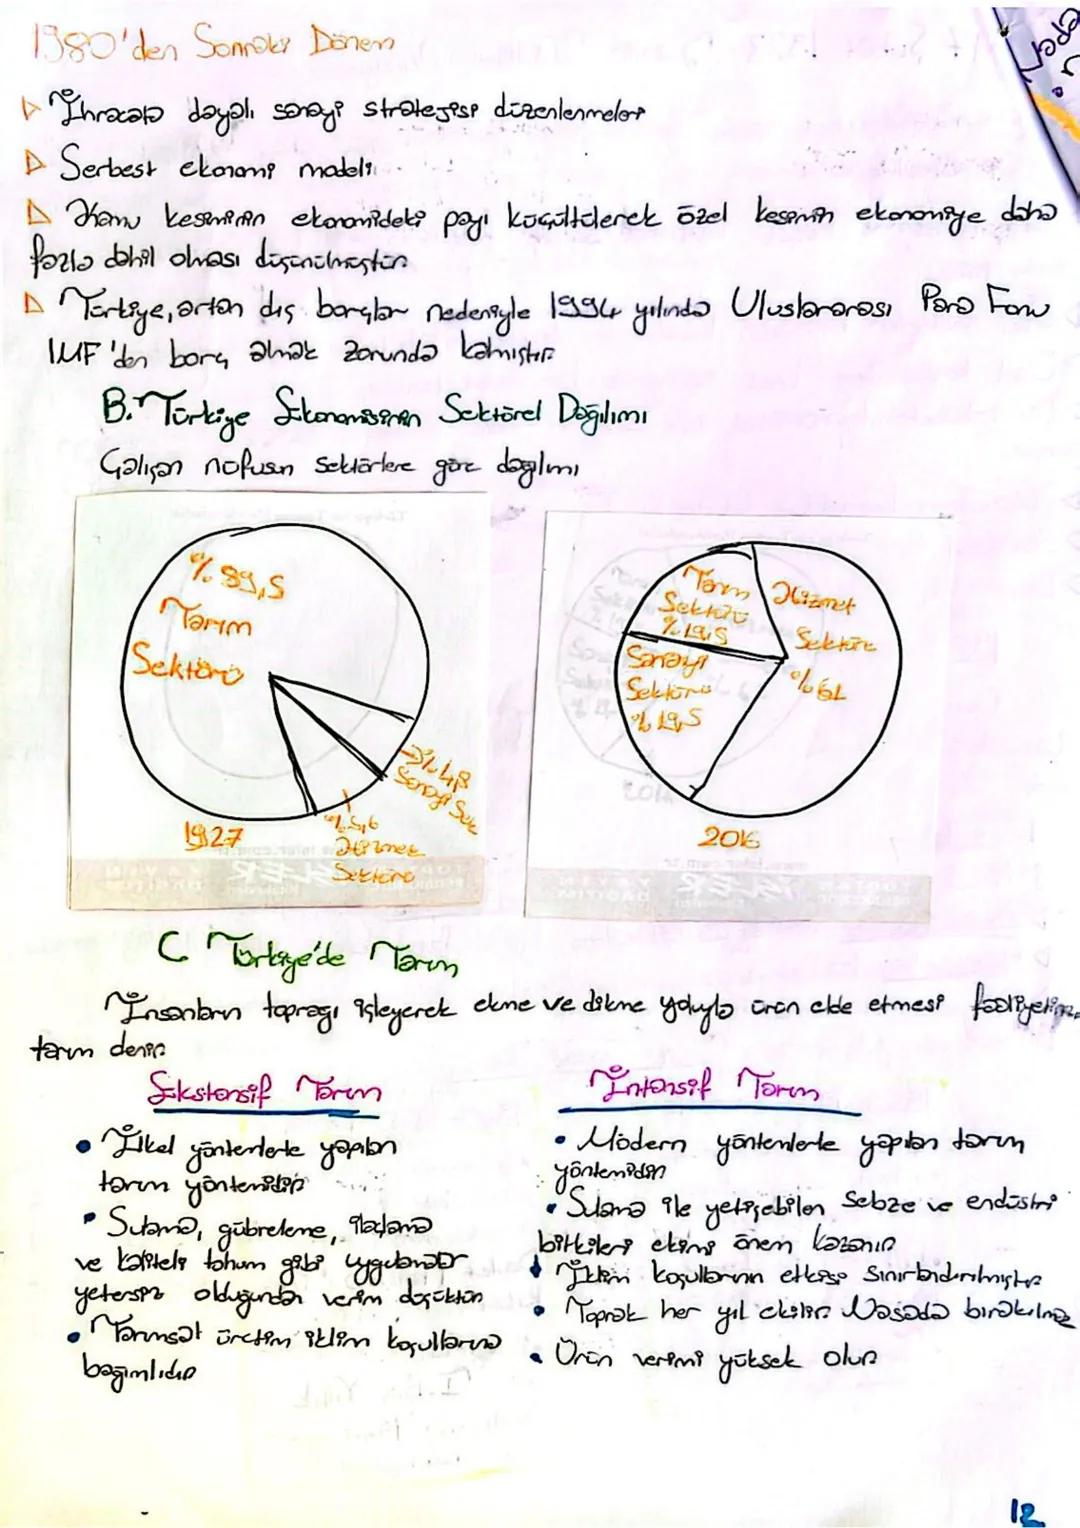 1980'den Sonraki Dönem
▷ İhracata dayalı sanayi stratejisi düzenlenmeleri
▷ Serbest ekonomi modeli
▷ Kamu kesiminin ekonomideki payı küçültülerek özel kesimin ekonomiye daha
fazla dahil olması düşünülmüştür
▷ Türkiye, artan dış borçlar nedeniyle 1994 yılında Uluslararası Para Fonu
IMF'den borç almak zorunda kalmıştır
B. Türkiye Ekonomisinin Sektörel Dağılımı
Çalışan nüfusun sektörlere göre dağılımı
% 89,5
Tarım
Sektörü
→ % 4,8
Sanayi Sek
% 5,6
Hizmet
Sektörü
1927
Tarım
Sektörü
% 19,5
Hizmet
Sektörü
% 61
Sanayi
Sektörü
% 19,5
2016
C Türkiye'de Tarım
İnsanların toprağı işleyerek ekme ve dikme yoluyla ürün elde etmesi faaliyetine
tarım denir
Ekstansif Tarım
• İlkel yöntemlerle yapılan
tarım yöntemidir
• Sulama, gübreleme, ilaçlama
ve kaliteli tohum gibi uygulamalar
yetersiz olduğundan verim düşüktür
• Tarımsal üretim iklim koşullarına
bağımlıdır
İntansif Tarım
• Modern yöntemlerle yapılan tarım
yöntemidir
• Sulama ile yetişebilen sebze ve endüstri
bitkileri ekimi önem kazanır
• İklim koşullarının etkisi sınırlandırılmıştır
• Toprak her yıl ekilir. Nadasa bırakılmaz
• Ürün verimi yüksek olur
12